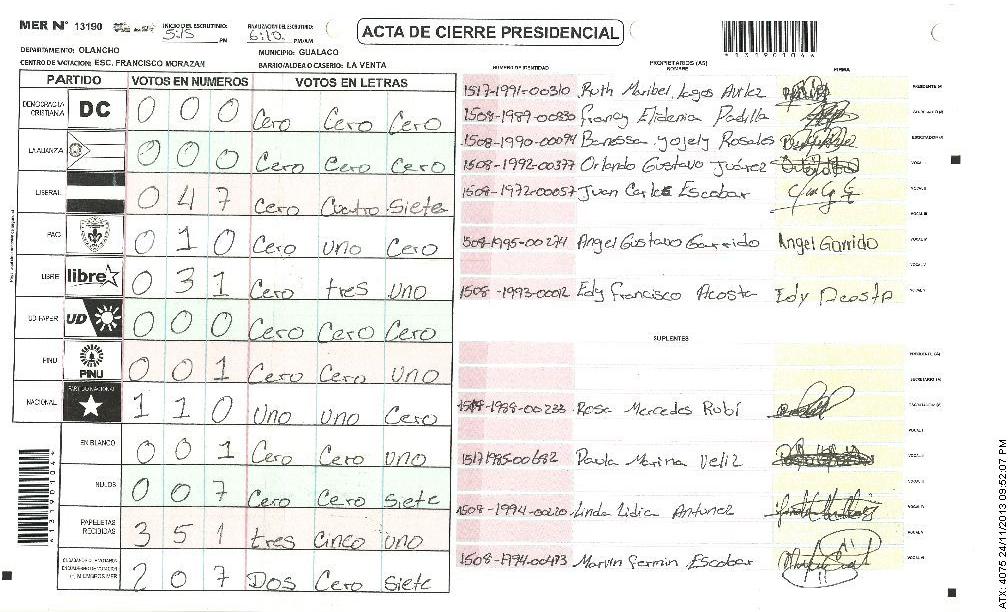 MER N° 13190 INICIO DEL ESCRUTINIO: 5:15 PM FINALIZACION DEL ESCRUTINIO: 6:10 PM/AM
ACTA DE CIERRE PRESIDENCIAL
*13190104*
DEPARTAMENTO: OLANCHO MUNICIPIO: GUALACO
CENTRO DE VOTACION: ESC. FRANCISCO MORAZAN BARRIO/ALDEA O CASERIO: LA VENTA
PARTIDO VOTOS EN NUMEROS VOTOS EN LETRAS
DEMOCRACIA CRISTIANA DC 0 0 0 Cero Cero Cero
LA ALIANZA 0 0 0 Cero Cero Cero
LIBERAL 0 4 7 Cero Cuatro Siete
PAC 0 1 0 Cero uno Cero
LIBRE libre 0 3 1 Cero tres uno
UD FAPER UD 0 0 0 Cero Cero Cero
PINU PINU 0 0 1 Cero Cero uno
NACIONAL PARTIDO NACIONAL 1 1 0 uno uno Cero
EN BLANCO 0 0 1 Cero Cero uno
NULOS 0 0 7 Cero Cero Siete
PAPELETAS RECIBIDAS 3 5 1 tres Cinco uno
2 0 7 Dos Cero Siete
*13190104*
PROPIETARIOS (AS)
NUMERO DE IDENTIDAD NOMBRE FIRMA
1517-1991-00310 Ruth Maribel Lagos PRESIDENTE (A)
1508-1989-00830 Francy Elidenia Padilla
1508-1990-00094 Banessa yojely Rosales
1508-1992-00377 Orlando Gustavo Juárez
1508-1972-00057 Juan Carlos Escobar
1508-1995-00274 Angel Gustavo Garrido Angel Garrido
1508-1993-0012 Edy francisco Acosta Edy Acosta
SUPLENTES
1508-1989-00233 Rosa Mercedes Rubí
1517198500682 Paula Marina Veliz
1508-1994-00220 Linda Lidia Antunez
1508-1994-00473 Marvin fermin Escobar
ATX: 4075 24/11/2013 09:52:07 PM